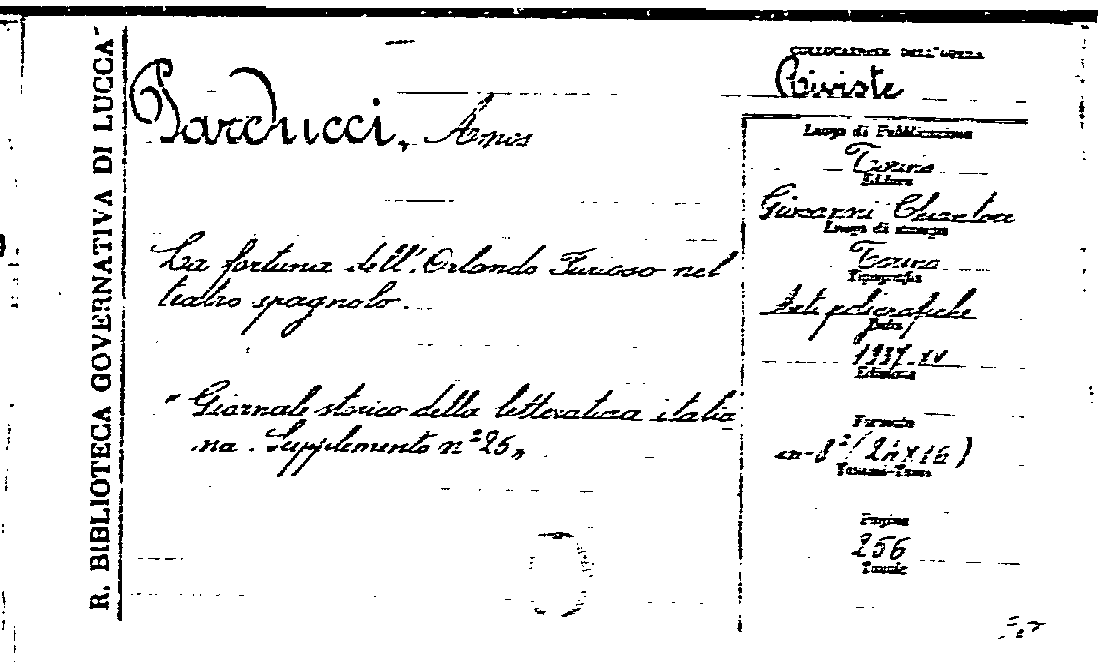 R. BIBLIOTECA GOVERNATIVA DI LUCCA
Parducci, Amos
La fortuna dell'Orlando Furioso nel
teatro spagnolo.
" Giornale storico della letteratura italia
na. Supplemento n° 26 "
COLLOCAZIONE DELL'OPERA
Riviste
Luogo di Pubblicazione
Torino
Editore
Giovanni Chiantore
Luogo di stampa
Torino
Tipografia
Arti poligrafiche
Data
1937-XV
Edizione
Formato
in-8° (24x16)
Volumi-Tomi
Pagine
256
Tavole